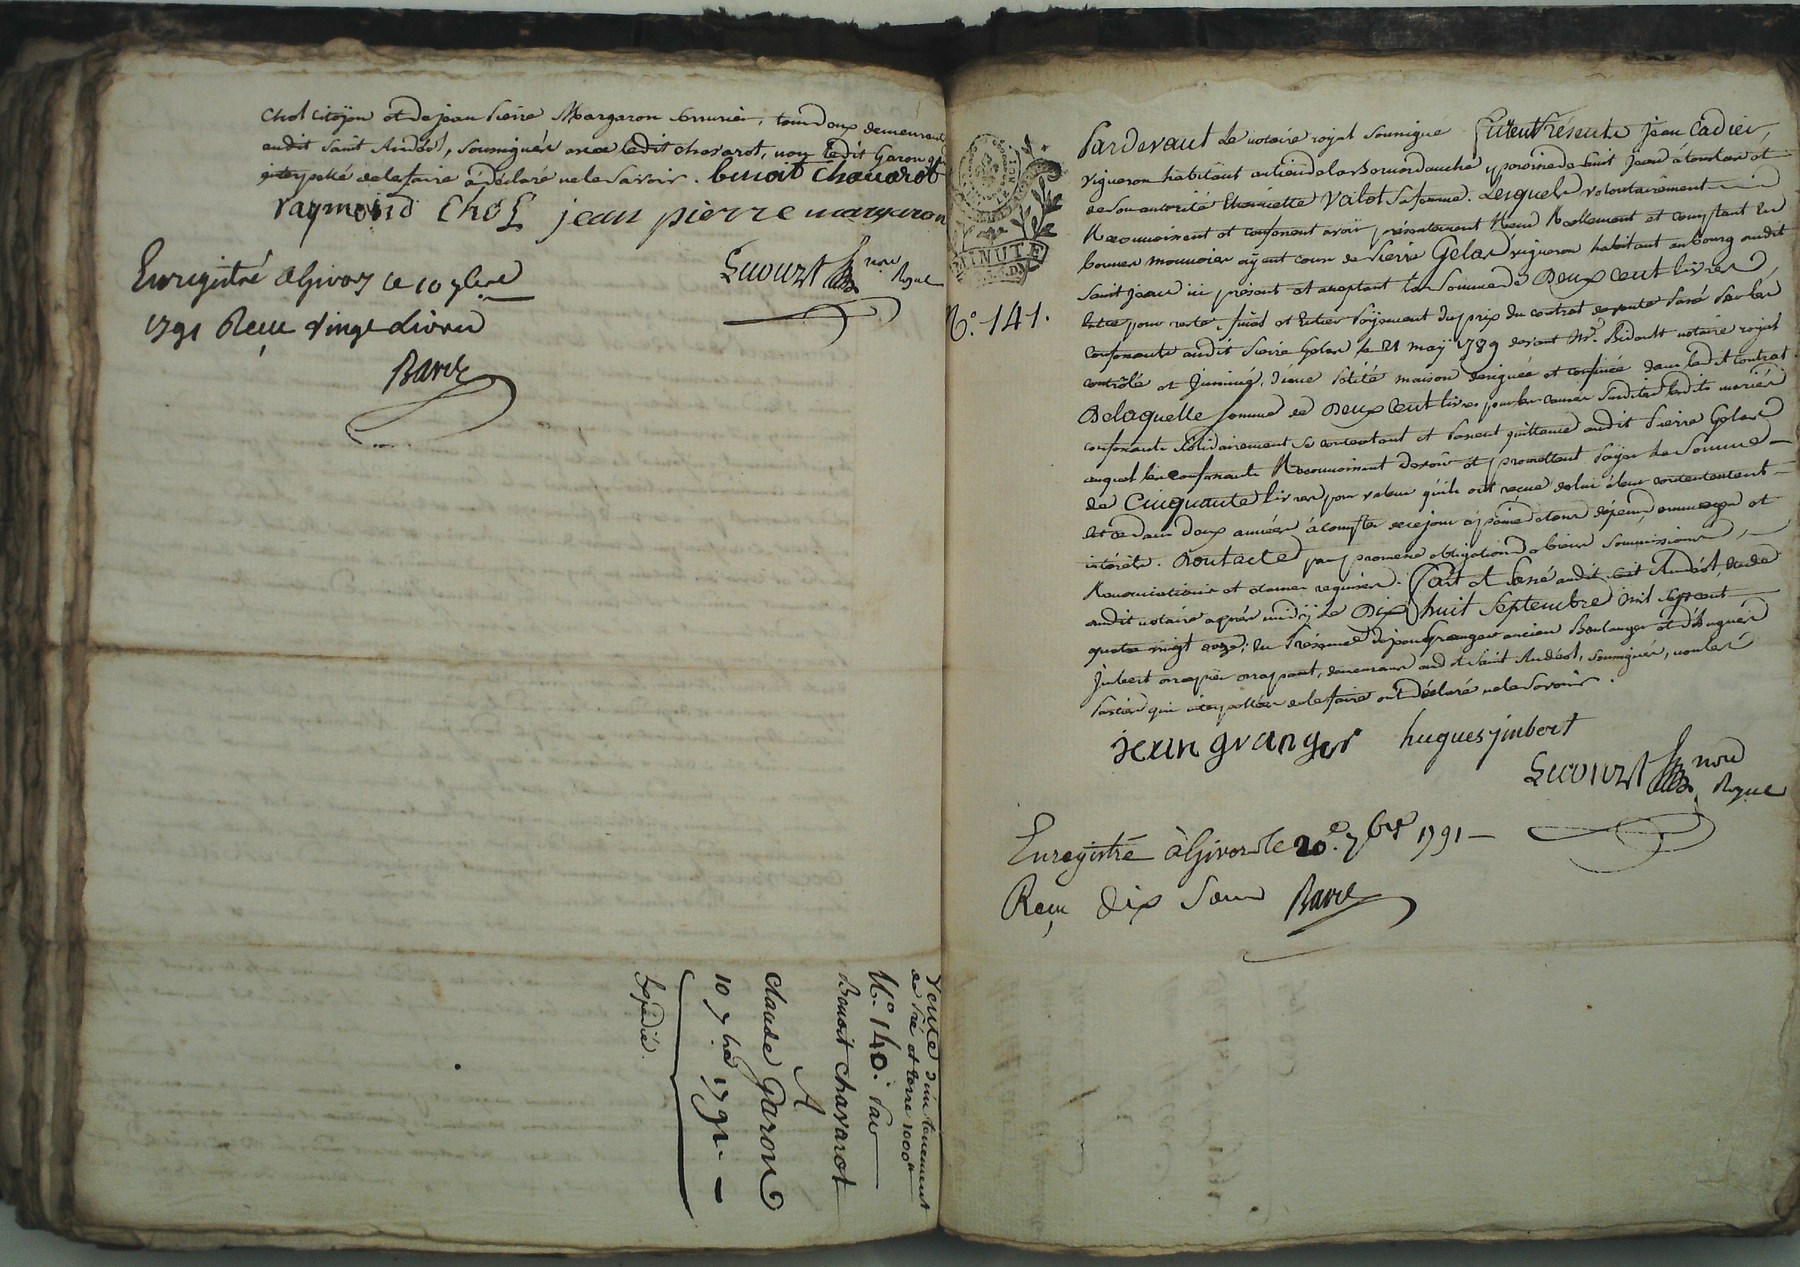 Chol citoÿen et de jean Pierre Margaron serrurier, tous deux demeurant
audit Saint Andéol, soussignés avec ledit Chavarot, non ledit Garon qui
interpellé de le faire a déclaré ne le savoir. benoit Chavarot
raymond Chol jean pierre margaron
Lecourt nore Royal
Enregistré a Givors le 10 7bre
1791 Reçu vingt Livres
Barei
Vente d'un tenement
de Pré et terre 1000#
N.o 140. Par
Benoit Chavarot
A
Claude Garon
10 7bre 1791
Expédié.
MINUTE
N.o 141.
Pardevant le notaire royal soussigné furent Présents jean Cadier,
vigneron habitant au lieu de la Bournondauche paroisse de Saint Jean à toulas et
de son autorité Etiennette Valot sa femme. Lesquels volontairement
Reconnoissent et confessent avoir présentement Reçu Réellement et comptant En
bonne monnoie aÿent cour de Pierre Gelas vigneron habitant au bourg oudit
Saint Jean ici présent et acceptant la Somme de Deux cent livres
pour reste, fin et Entier Paÿement du prix du contrat de vente Passé Par les
Confessants audit Pierre Gelas le 21 maÿ 1789 devant Mr. Bidault notaire royal
contrôlé et Insinué, d'une petite maison designée et confinée dans ledit contrat.
De laquelle somme de Deux Cent livres pour les causes susdites lesdits mariés
confessants Solidairement se contentent et Passent quittance audit Pierre Gelas
auquel les confessants Reconnoissent devoir et promettent Paÿer la Somme
de Cinquante livres pour valeur qu'ils ont reçue de lui à leur contentement
et ce dans deux années à compter de ce jour à peine de tous dépens, dommages et
intérêts. Dont acte par promesse obligation de biens soumissions,
Renonciations et clauses requises. Fait et Passé audit Saint Andéol, étude
dudit notaire après midÿ Le Dix huit Septembre mil sept cent
quatre vingt onze, En Présence de jean Granger ancien Boulanger et d'hugues
Jmbert demeurans audit Saint Andéol, soussignés, non les
Parties qui interpellées de le faire ont déclaré ne le Savoir.
jean granger hugues jmbert
Lecourt nore Royal
Enregistré à Givors le 20.e 7bre 1791
Reçu dix Sous Barei